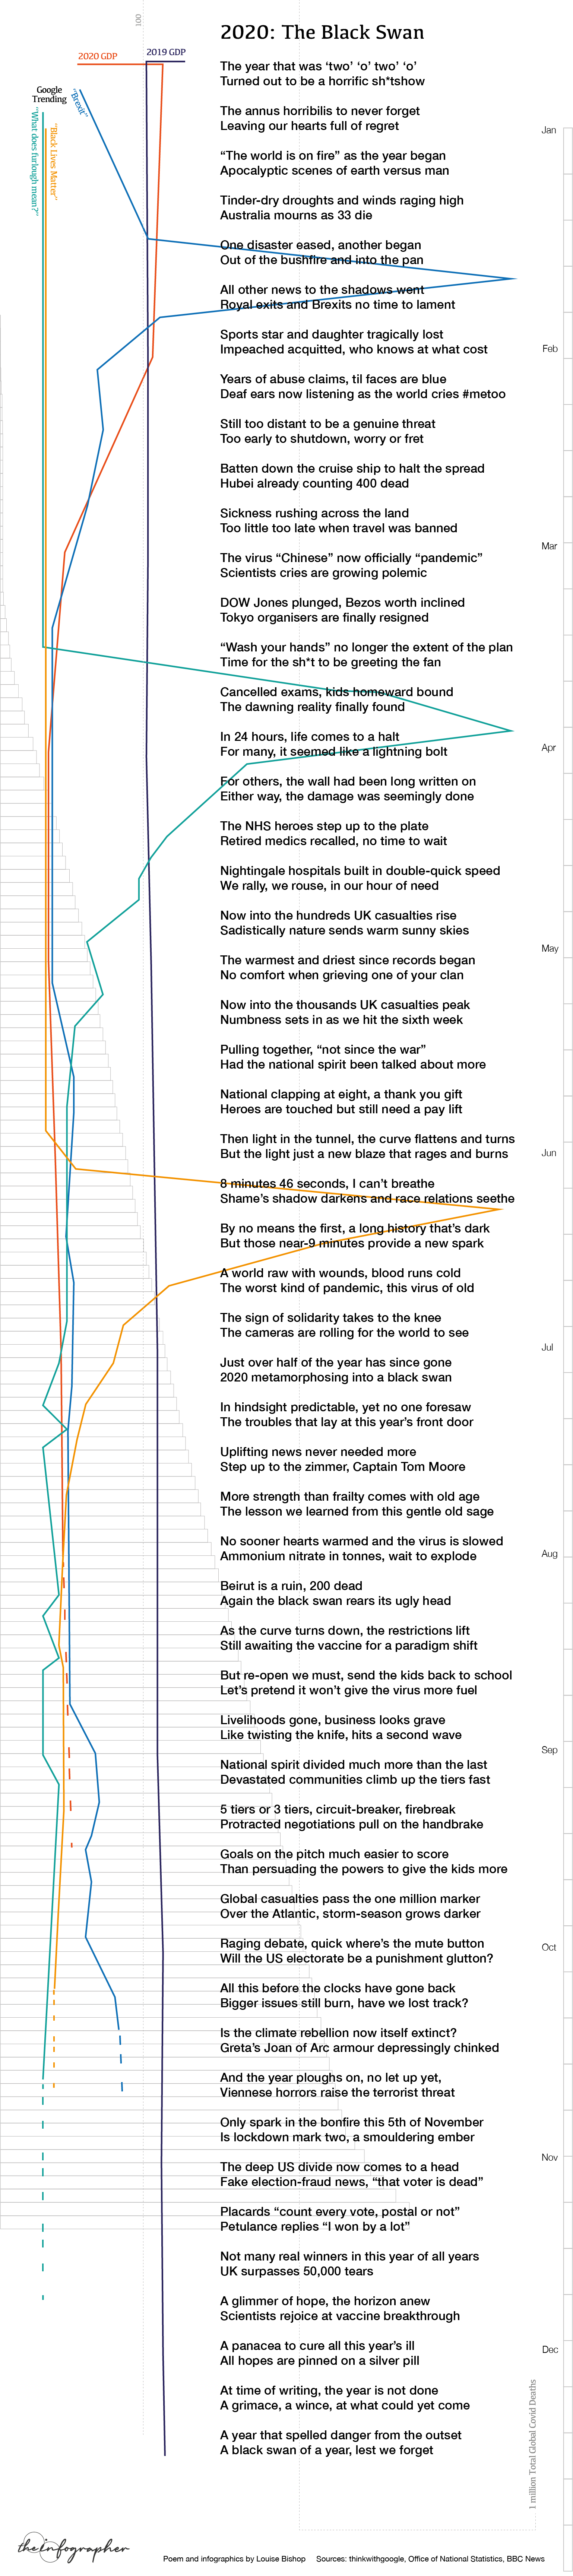 100
2020: The Black Swan
2019 GDP
2020 GDP
Google
Trending
"Brexit"
"What does furlough mean?"
"Black Lives Matter"
The year that was ‘two’ ‘o’ two’ ‘o’
Turned out to be a horrific sh*tshow
The annus horribilis to never forget
Leaving our hearts full of regret
Jan
“The world is on fire” as the year began
Apocalyptic scenes of earth versus man
Tinder-dry droughts and winds raging high
Australia mourns as 33 die
One disaster eased, another began
Out of the bushfire and into the pan
All other news to the shadows went
Royal exits and Brexits no time to lament
Sports star and daughter tragically lost
Impeached acquitted, who knows at what cost
Feb
Years of abuse claims, til faces are blue
Deaf ears now listening as the world cries #metoo
Still too distant to be a genuine threat
Too early to shutdown, worry or fret
Batten down the cruise ship to halt the spread
Hubei already counting 400 dead
Sickness rushing across the land
Too little too late when travel was banned
Mar
The virus “Chinese” now officially “pandemic”
Scientists cries are growing polemic
DOW Jones plunged, Bezos worth inclined
Tokyo organisers are finally resigned
“Wash your hands” no longer the extent of the plan
Time for the sh*t to be greeting the fan
Cancelled exams, kids homeward bound
The dawning reality finally found
In 24 hours, life comes to a halt
For many, it seemed like a lightning bolt
Apr
For others, the wall had been long written on
Either way, the damage was seemingly done
The NHS heroes step up to the plate
Retired medics recalled, no time to wait
Nightingale hospitals built in double-quick speed
We rally, we rouse, in our hour of need
Now into the hundreds UK casualties rise
Sadistically nature sends warm sunny skies
May
The warmest and driest since records began
No comfort when grieving one of your clan
Now into the thousands UK casualties peak
Numbness sets in as we hit the sixth week
Pulling together, “not since the war”
Had the national spirit been talked about more
National clapping at eight, a thank you gift
Heroes are touched but still need a pay lift
Then light in the tunnel, the curve flattens and turns
But the light just a new blaze that rages and burns
Jun
8 minutes 46 seconds, I can’t breathe
Shame’s shadow darkens and race relations seethe
By no means the first, a long history that’s dark
But those near-9 minutes provide a new spark
A world raw with wounds, blood runs cold
The worst kind of pandemic, this virus of old
The sign of solidarity takes to the knee
The cameras are rolling for the world to see
Jul
Just over half of the year has since gone
2020 metamorphosing into a black swan
In hindsight predictable, yet no one foresaw
The troubles that lay at this year’s front door
Uplifting news never needed more
Step up to the zimmer, Captain Tom Moore
More strength than frailty comes with old age
The lesson we learned from this gentle old sage
No sooner hearts warmed and the virus is slowed
Ammonium nitrate in tonnes, wait to explode
Aug
Beirut is a ruin, 200 dead
Again the black swan rears its ugly head
As the curve turns down, the restrictions lift
Still awaiting the vaccine for a paradigm shift
But re-open we must, send the kids back to school
Let’s pretend it won’t give the virus more fuel
Livelihoods gone, business looks grave
Like twisting the knife, hits a second wave
Sep
National spirit divided much more than the last
Devastated communities climb up the tiers fast
5 tiers or 3 tiers, circuit-breaker, firebreak
Protracted negotiations pull on the handbrake
Goals on the pitch much easier to score
Than persuading the powers to give the kids more
Global casualties pass the one million marker
Over the Atlantic, storm-season grows darker
Raging debate, quick where’s the mute button
Will the US electorate be a punishment glutton?
Oct
All this before the clocks have gone back
Bigger issues still burn, have we lost track?
Is the climate rebellion now itself extinct?
Greta’s Joan of Arc armour depressingly chinked
And the year ploughs on, no let up yet,
Viennese horrors raise the terrorist threat
Only spark in the bonfire this 5th of November
Is lockdown mark two, a smouldering ember
Nov
The deep US divide now comes to a head
Fake election-fraud news, “that voter is dead”
Placards “count every vote, postal or not”
Petulance replies “I won by a lot”
Not many real winners in this year of all years
UK surpasses 50,000 tears
A glimmer of hope, the horizon anew
Scientists rejoice at vaccine breakthrough
Dec
A panacea to cure all this year’s ill
All hopes are pinned on a silver pill
At time of writing, the year is not done
A grimace, a wince, at what could yet come
A year that spelled danger from the outset
A black swan of a year, lest we forget
1 million Total Global Covid Deaths
theinfographer
Poem and infographics by Louise Bishop Sources: thinkwithgoogle, Office of National Statistics, BBC News